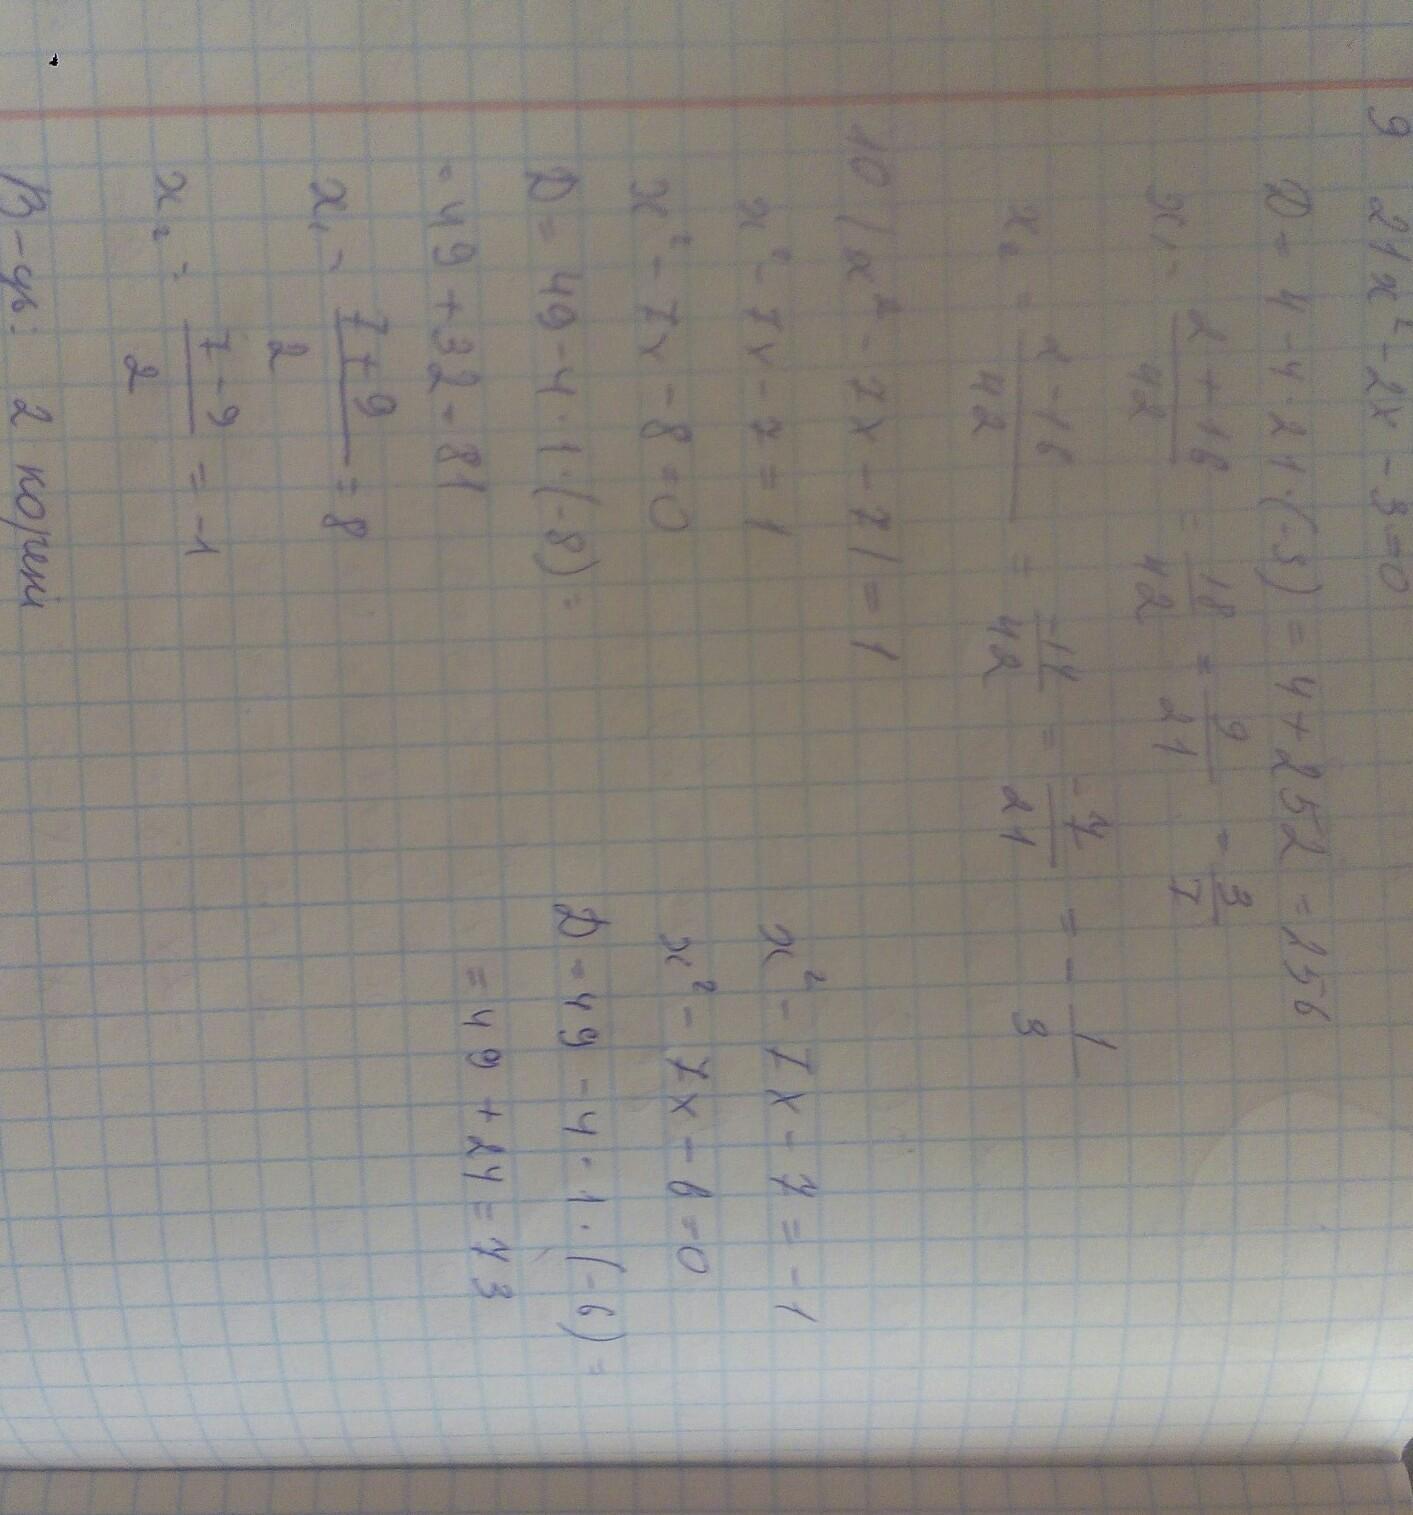 9 21x² - 2x - 3 = 0
D = 4 - 4 · 21 · (-3) = 4 + 252 = 256
x₁ = (2 + 16)/42 = 18/42 = 9/21 = 3/7
x₂ = (2 - 16)/42 = -14/42 = -7/21 = - 1/3
10 |x² - 7x - 7| = 1
x² - 7x - 7 = 1
x² - 7x - 8 = 0
D = 49 - 4 · 1 · (-8) =
= 49 + 32 = 81
x₁ = (7 + 9)/2 = 8
x₂ = (7 - 9)/2 = -1
x² - 7x - 7 = -1
x² - 7x - 6 = 0
D = 49 - 4 · 1 · (-6) =
= 49 + 24 = 73
В-дь: 2 корені